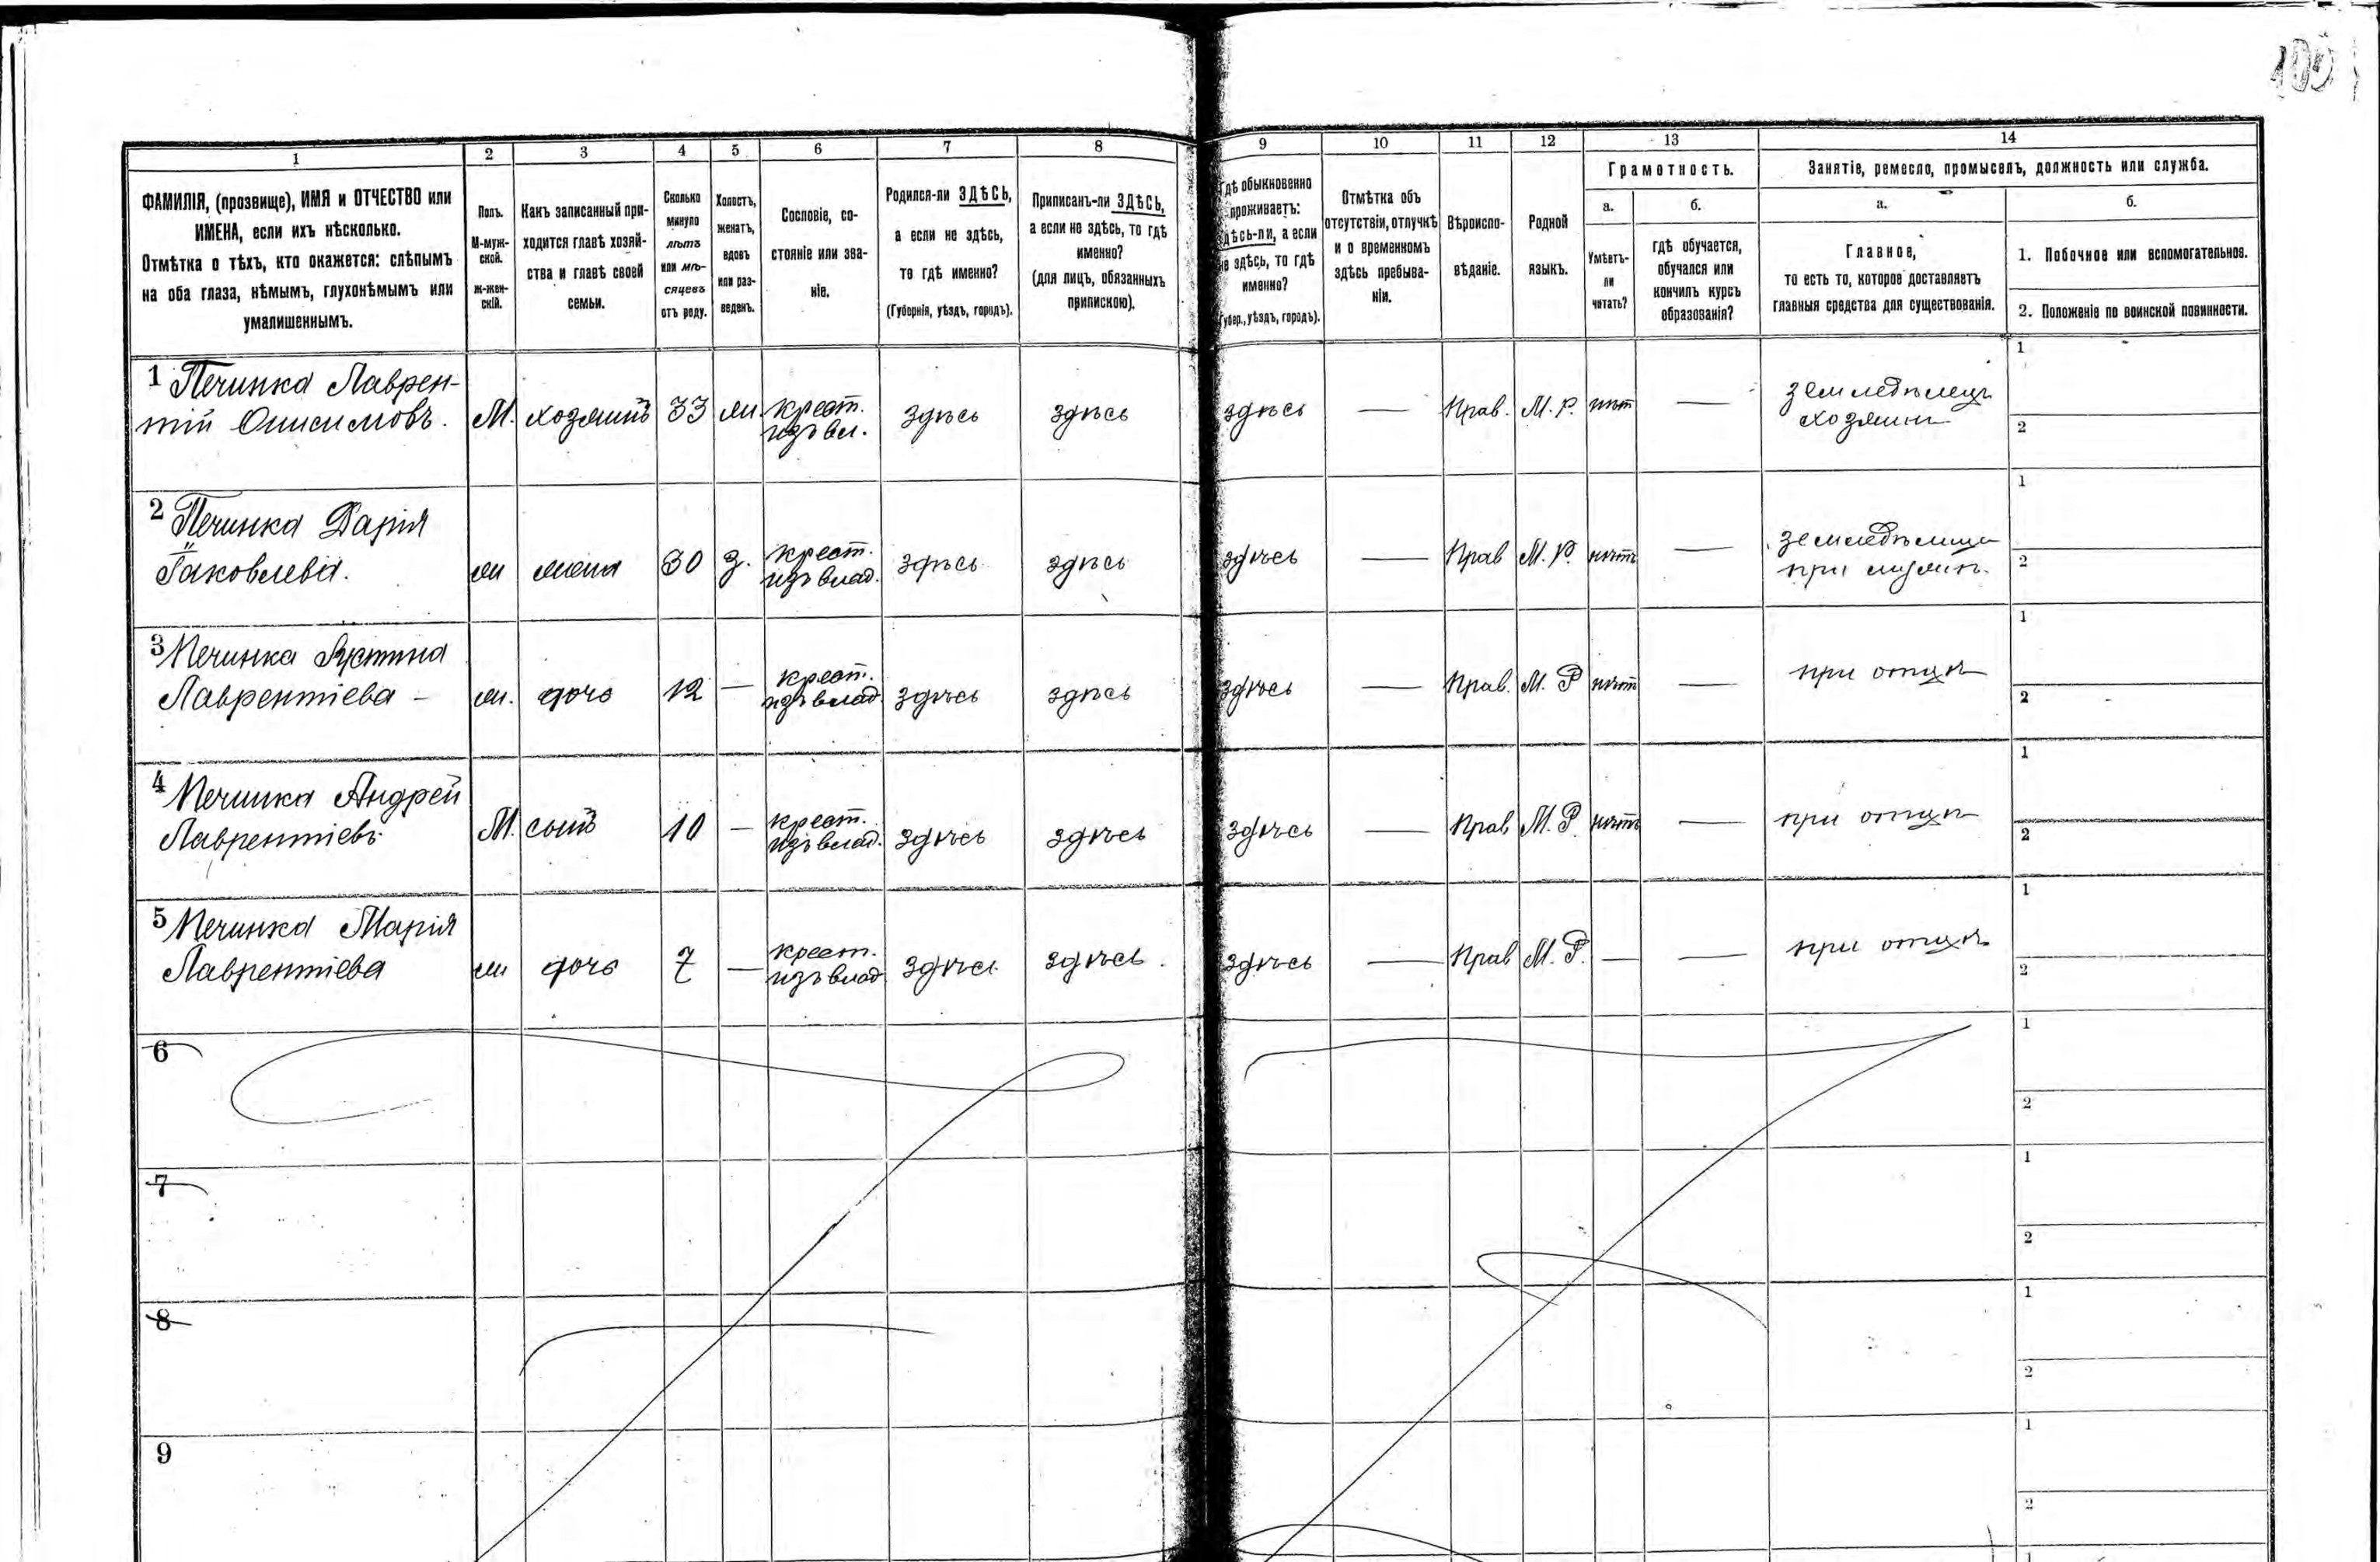 105
1
2
3
4
5
6
7
8
9
10
11
12
13
14
ФАМИЛІЯ, (прозвище), ИМЯ и ОТЧЕСТВО или
ИМЕНА, если ихъ нѣсколько.
Отмѣтка о тѣхъ, кто окажется: слѣпымъ
на оба глаза, нѣмымъ, глухонѣмымъ или
умалишеннымъ.
Полъ.
М-муж-
ской.
ж-жен-
скій.
Какъ записанный при-
ходится главѣ хозяй-
ства и главѣ своей
семьи.
Сколько
минуло
лѣтъ
или мѣ-
сяцевъ
отъ роду.
Холостъ,
женатъ,
вдовъ
или раз-
веденъ.
Сословіе, со-
стояніе или зва-
ніе.
Родился-ли ЗДѢСЬ,
а если не здѣсь,
то гдѣ именно?
(Губернія, уѣздъ, городъ).
Приписанъ-ли ЗДѢСЬ,
а если не здѣсь, то гдѣ
именно?
(для лицъ, обязанныхъ
припискою).
Гдѣ обыкновенно
проживаетъ:
здѣсь-ли, а если
не здѣсь, то гдѣ
именно?
(Губер., уѣздъ, городъ).
Отмѣтка объ
отсутствіи, отлучкѣ
и о временномъ
здѣсь пребыва-
ніи.
Вѣроиспо-
вѣданіе.
Родной
языкъ.
Грамотность.
а.
Умѣетъ-
ли
читать?
б.
гдѣ обучается,
обучался или
кончилъ курсъ
образованія?
Занятіе, ремесло, промыселъ, должность или служба.
а.
Главное,
то есть то, которое доставляетъ
главныя средства для существованія.
б.
1. Побочное или вспомогательное.
2. Положеніе по воинской повинности.
1 Печинка Лаврен-
тій Онисимовъ. М. хозяинъ 33 ж крест. изъ вл. здѣсь здѣсь здѣсь — Прав. М. Р. нѣт — земледѣлецъ хозяин 1 2
2 Печинка Дарія
Іаковлева. ж жена 30 з. крест. изъ влад. здѣсь здѣсь здѣсь — Прав М. Р. нѣтъ — земледѣлица при 1 2
3 Печинка Устина
Лаврентіева — ж. дочь 12 — крест. изъ влад здѣсь здѣсь здѣсь — Прав. М. Р нѣт — при отцѣ 1 2
4 Печинка Андрей
Лаврентіевъ М. сынъ 10 — крест. изъ влад. здѣсь здѣсь здѣсь — Прав М. Р. нѣтъ — при отцѣ 1 2
5 Печинка Марія
Лаврентіева ж дочь 7 — крест. изъ влад здѣсь здѣсь. здѣсь — Прав М. Р. — — при отцѣ 1 2
6 1 2
7 1 2
8 1 2
9 1 2
1